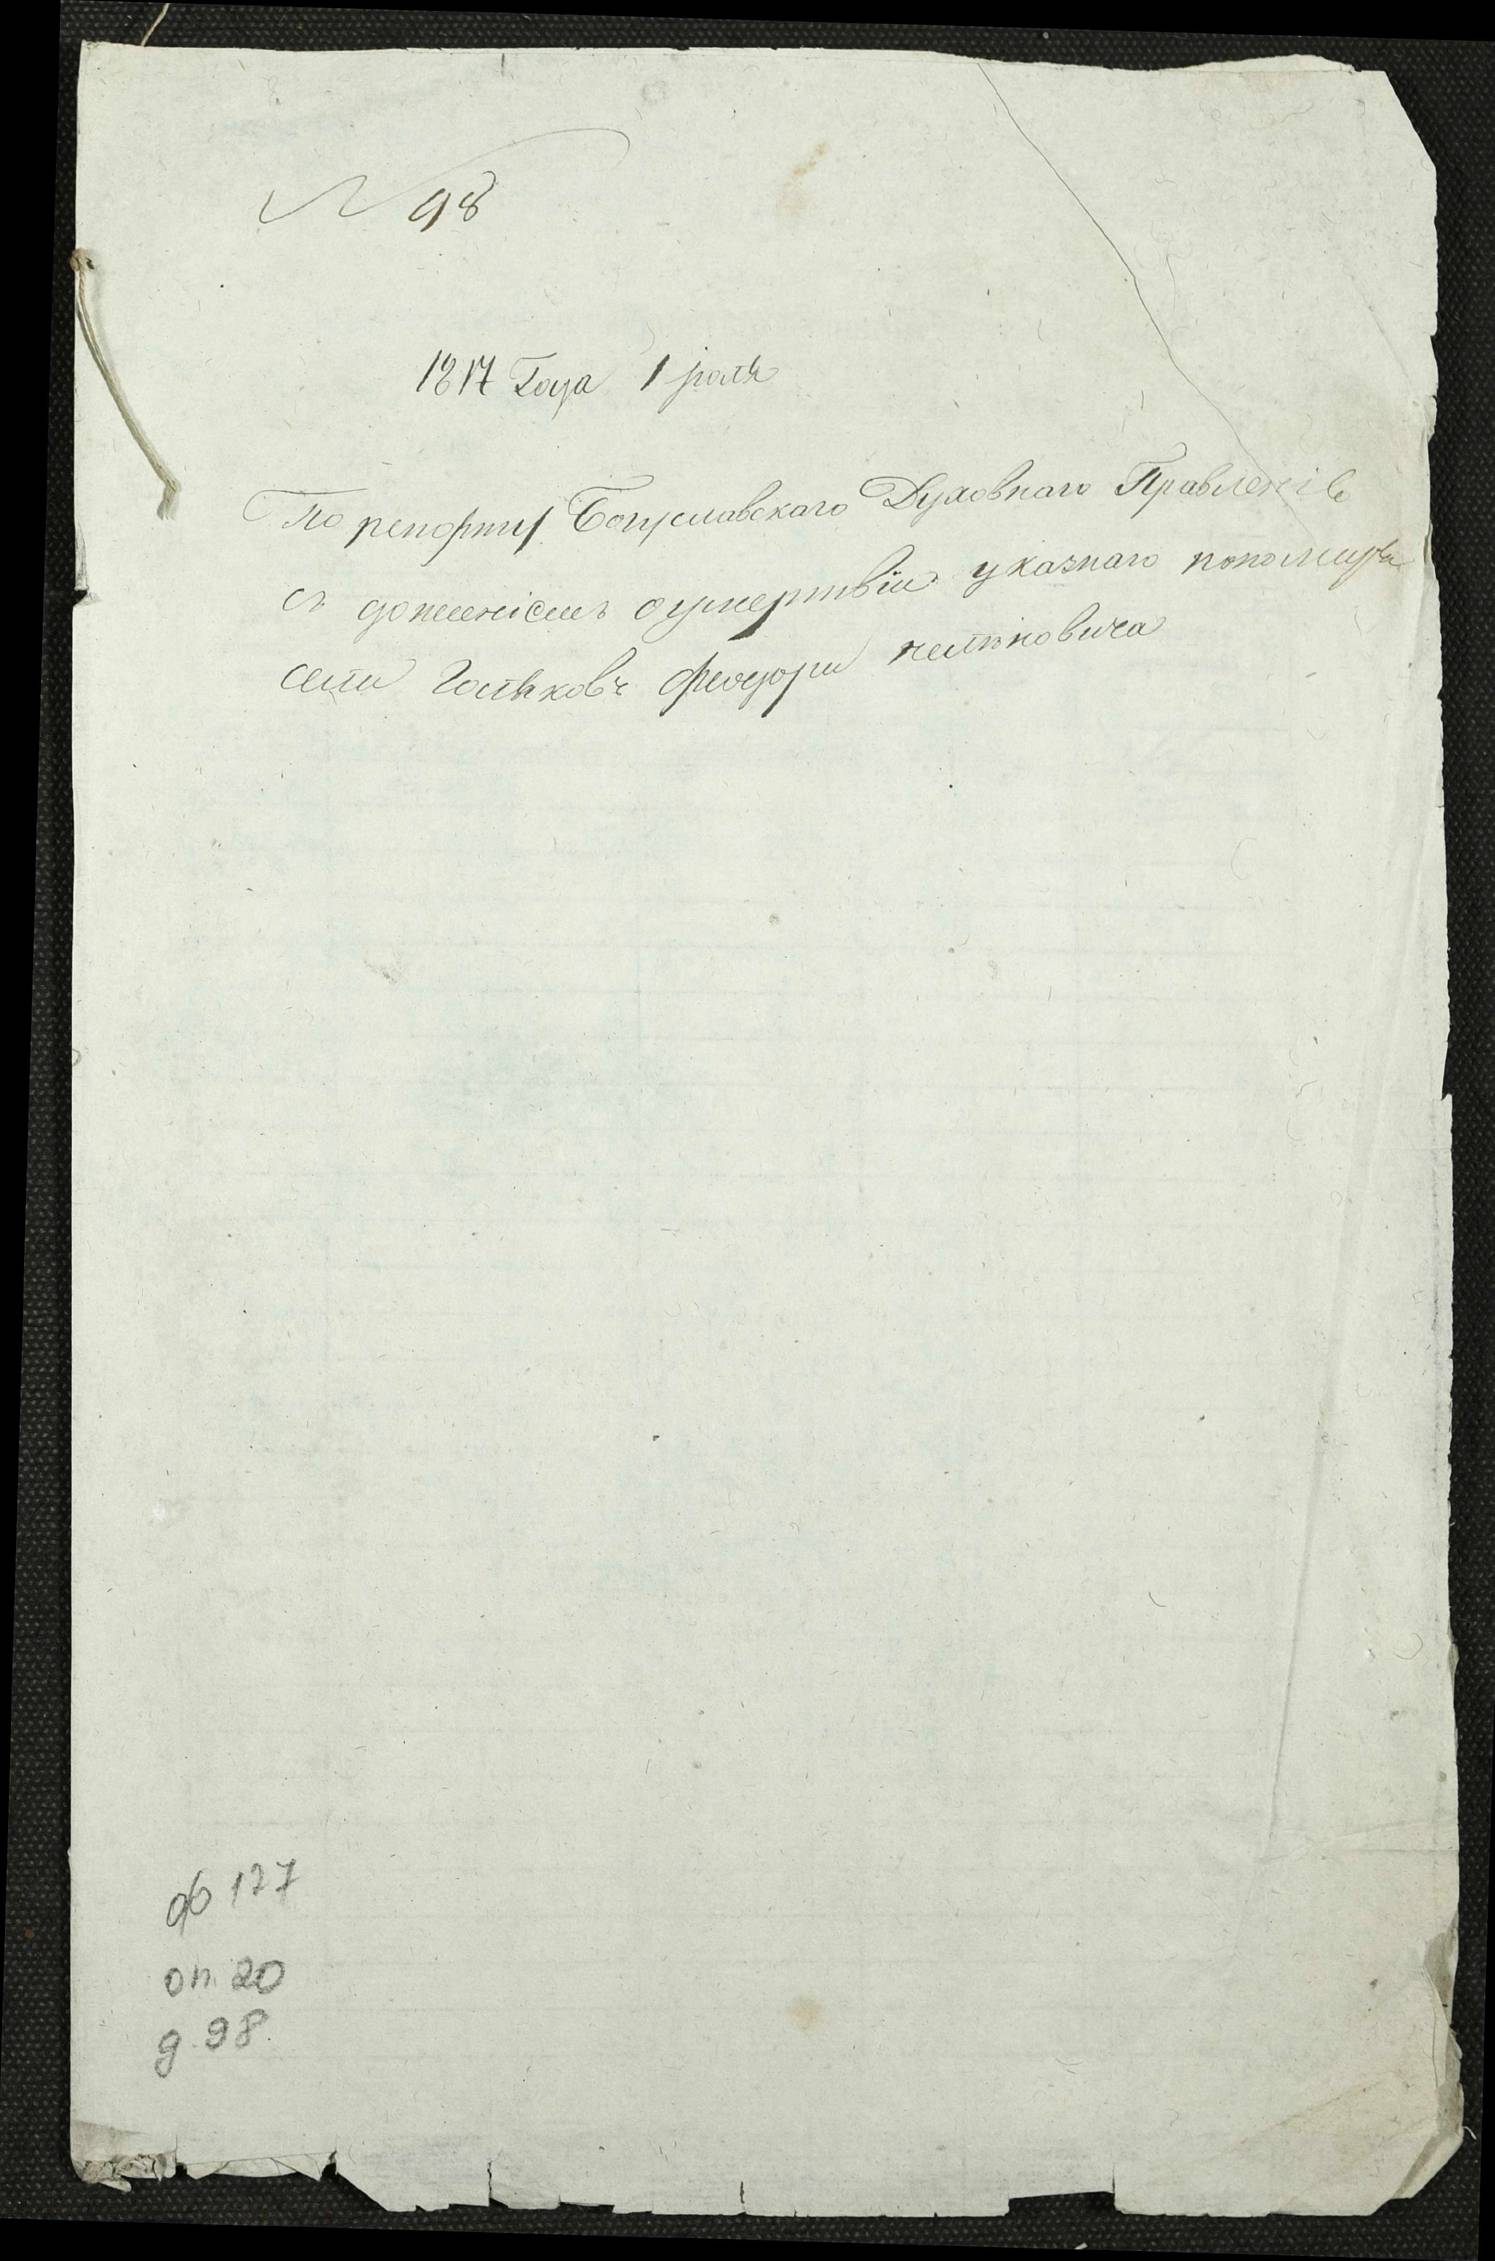 N 98
1817 Года 1 юля
По репорту Богуславскаго Духовнаго Правленія
съ доженіемъ о умертвіи указнаго пономаря
села Феодора
ф 127
оп 20
д 98